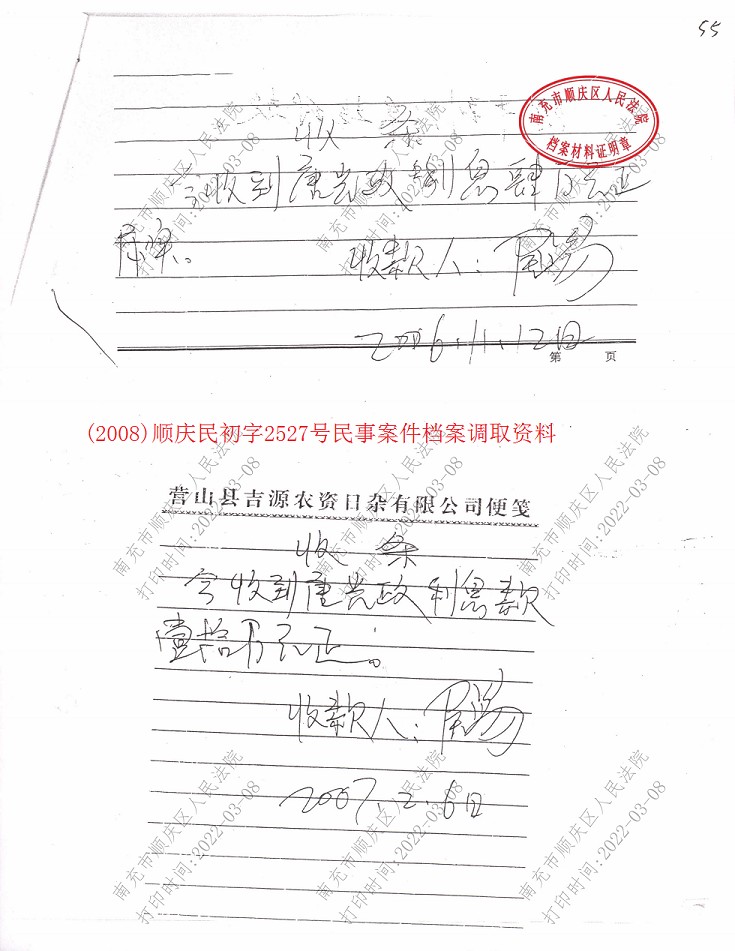 55
南充市顺庆区人民法院
档案材料证明章
收 条
今收到唐兴政利息肆万元正
收款人：周易
2006.11.12日
第 页
(2008)顺庆民初字2527号民事案件档案调取资料
营山县吉源农资日杂有限公司便笺
收 条
今收到唐兴政利息款
壹拾万元正。
收款人：周易
2007.2.6日
南充市顺庆区人民法院
打印时间:2022-03-08